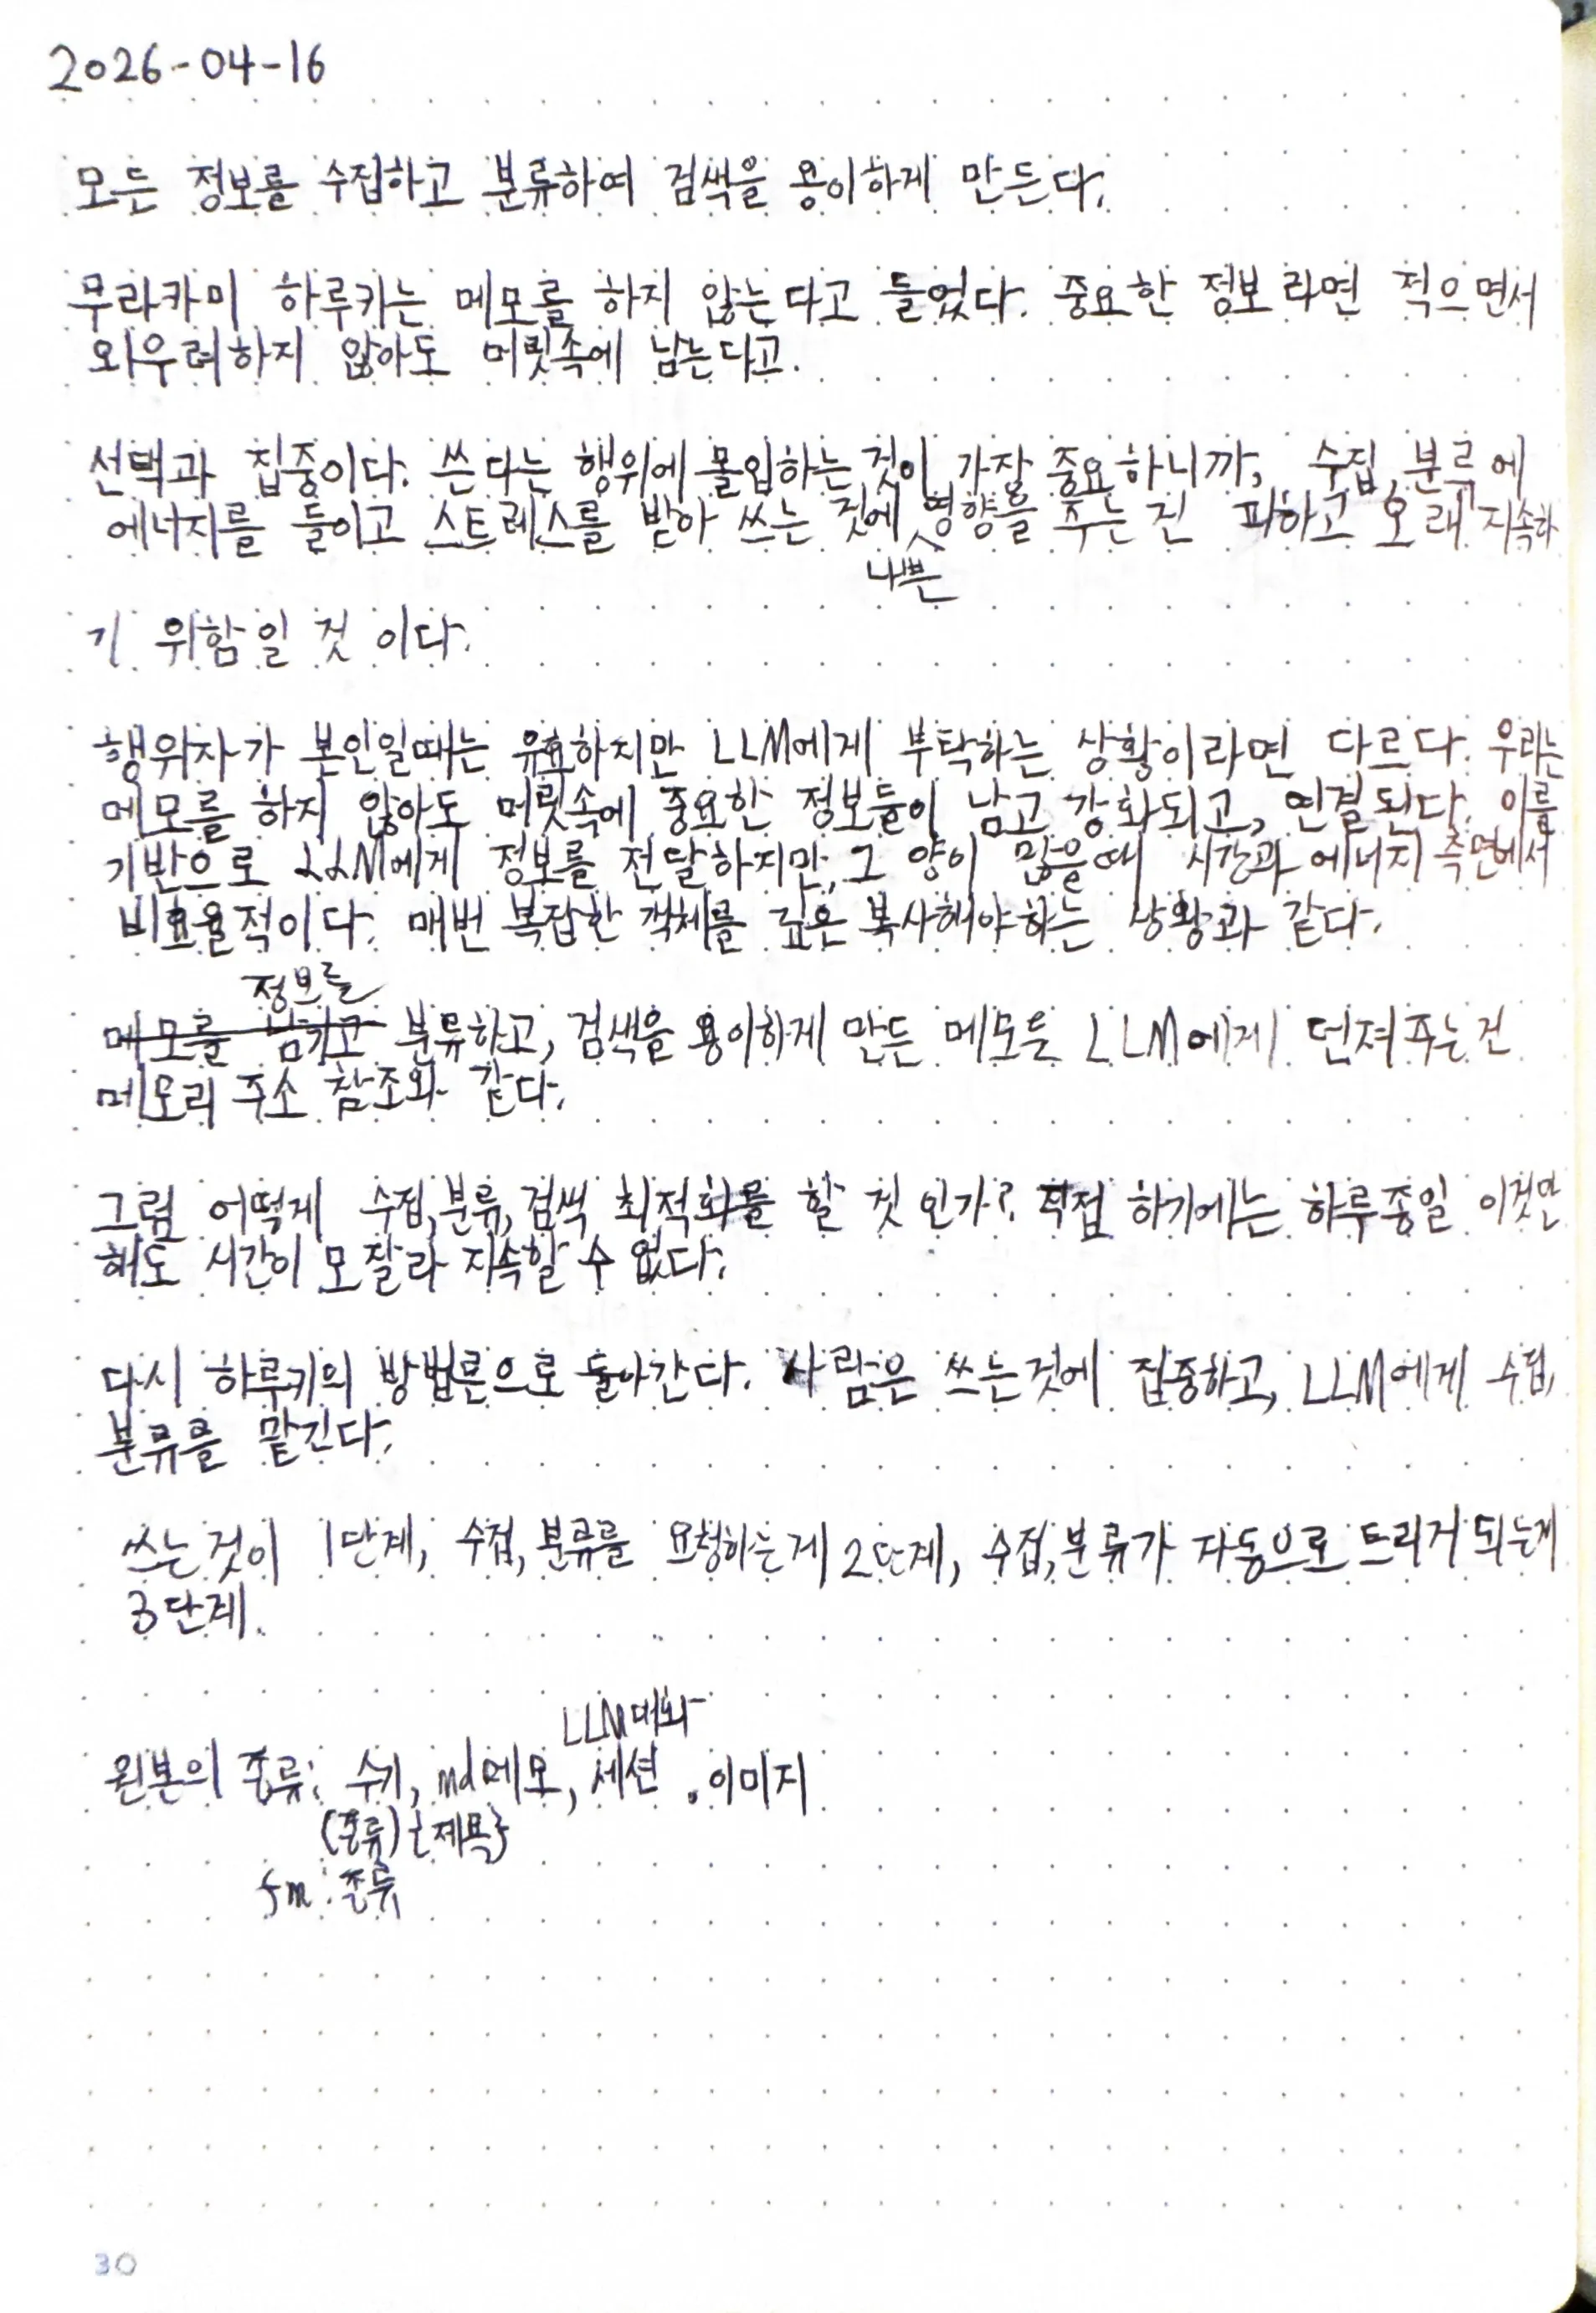 2026-04-16
모든 정보를 수집하고 분류하여 검색을 용이하게 만든다.
무라카미 하루키는 메모를 하지 않는다고 들었다. 중요한 정보라면 적으면서
외우려하지 않아도 머릿속에 남는다고.
선택과 집중이다. 쓴다는 행위에 몰입하는 것이 가장 중요하니까, 수집, 분류에
에너지를 들이고 스트레스를 받아 쓰는 것에 나쁜 영향을 주는 건 피하고 오래 지속하
기 위함일 것이다.
행위자가 본인일때는 유효하지만 LLM에게 부탁하는 상황이라면 다르다. 우리는
메모를 하지 않아도 머릿속에 중요한 정보들이 남고 강화되고, 연결된다. 이를
기반으로 LLM에게 정보를 전달하지만, 그 양이 많을 때 시간과 에너지 측면에서
비효율적이다. 매번 복잡한 객체를 깊은 복사해야하는 상황과 같다.
정보를
메모를 남기고 분류하고, 검색을 용이하게 만든 메모를 LLM에게 던져주는 건
메모리 주소 참조와 같다.
그럼 어떻게 수집, 분류, 검색 최적화를 할 것 인가? 직접 하기에는 하루종일 이것만
해도 시간이 모잘라 지속할 수 없다.
다시 하루키의 방법론으로 돌아간다. 사람은 쓰는것에 집중하고, LLM에게 수집,
분류를 맡긴다.
쓰는것이 1단계, 수집, 분류를 요청하는게 2단계, 수집, 분류가 자동으로 트리거 되는게
3단계.
LLM대화
원본의 종류: 수기, md메모, 세션, 이미지
(종류){제목}
fm: 종류
30